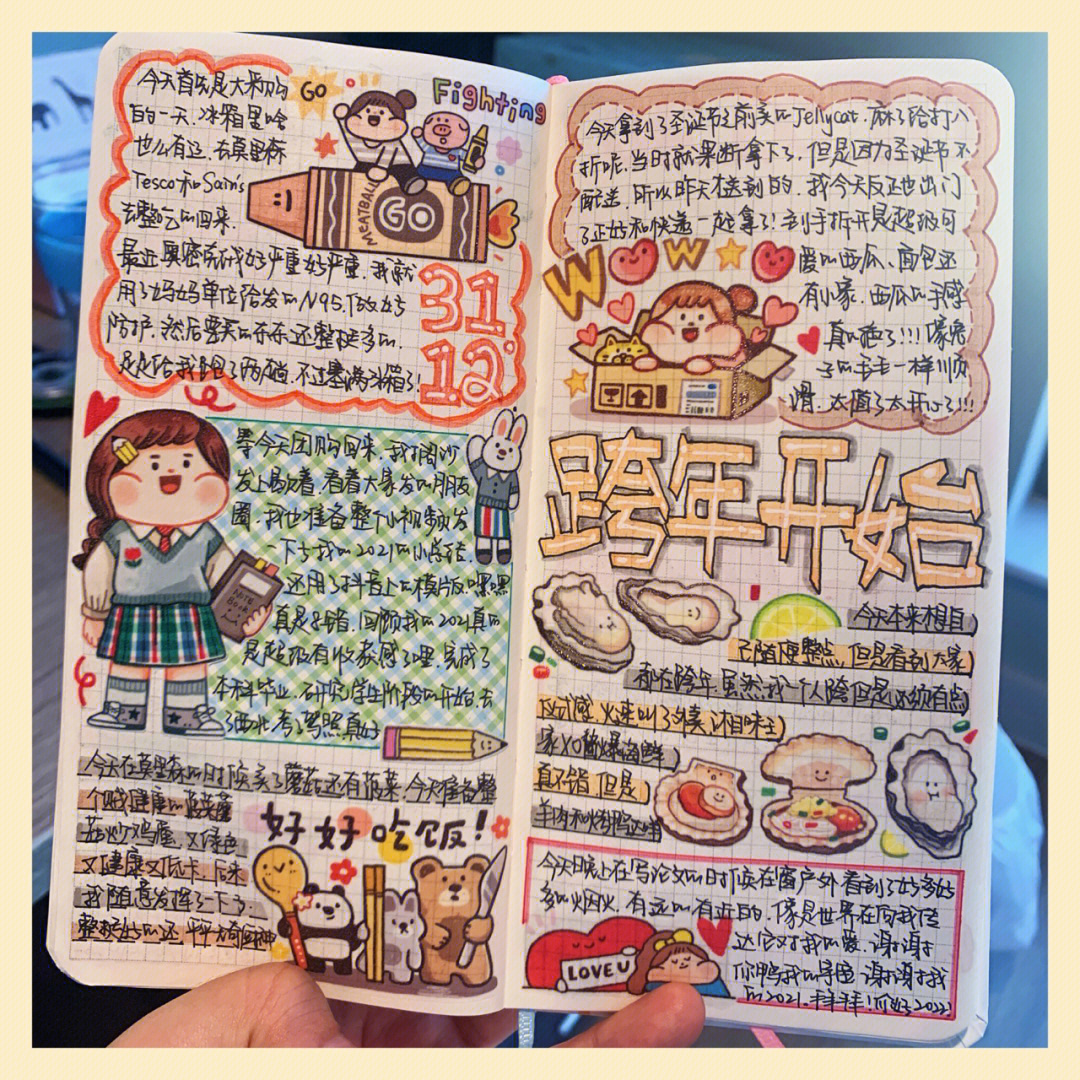 今天首先是大采购
的一天.冰箱里啥
也么有这.去莫里森
Tesco和Sain's
去整吃的回来.
最近奥密克戎好严重好严重.我就
用了妈妈单位给发的N95.做好
防护.然后要买的东东还整挺多的.
足足给我跑了两趟.不过塞满冰箱了!
GO
Fighting
MEATBALL
GO
31
12
等今天团购回来.我打阔沙
发上歇着.看着大家发的朋友
圈.我也准备整个小视频发
一下子我的2021的小总结.
还用了抖音上的模版.嘿嘿
真是不错.回顾我的2021真的
是超级有收获感了哩.完成了
本科毕业.研究学生阶段的开始.去
了西北.考了驾照.真好
NOTE
BOOK
今天在莫里森的时候买了蘑菇还有菠菜.今天准备整
个贼健康的菠菜蘑
菇炒鸡蛋.又绿色
又健康又低卡.后来
我随意发挥了一下子.
整挺好的还.
好好吃饭!
今天拿到了圣诞节之前买的Jellycat.麻了给打八
折呢.当时就果断拿下了.但是因为圣诞节不
配送.所以昨天才送到的.我今天反正也出门
了正好和快递一起拿了!到手拆开是超级可
爱的西瓜、面包还
有小家.西瓜的手感
真的绝了!!!像兔
子的毛毛一样顺
滑.太值了太开心了!!!
W
W
跨年开始
今天本来想自
己随便整点.但是看到大家
都在跨年.虽然我一个人跨但是必须有点
仪式感.火速叫了外卖.湘味土
家XO酱爆海鲜
真不错.但是
今天晚上在写论文的时候在窗户外看到了好多好
多的烟火.有远的有近的.像是世界在向我传
达它对我的爱.谢谢
你鸭我的导师.谢谢我
的2021.拜拜!你好2022!
LOVE U